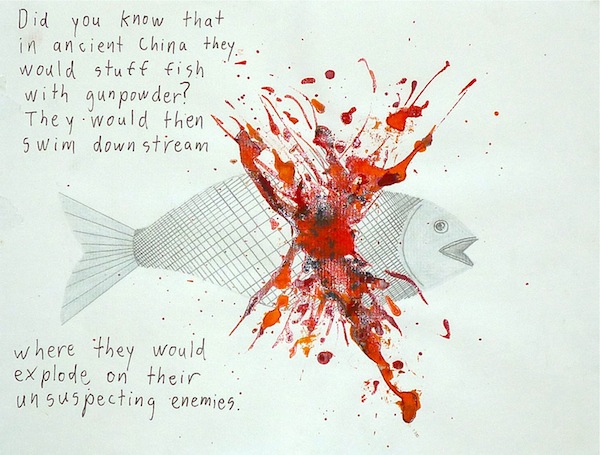 Did you know that
in ancient China they
would stuff fish
with gunpowder?
They would then
swim downstream
where they would
explode on their
unsuspecting enemies.